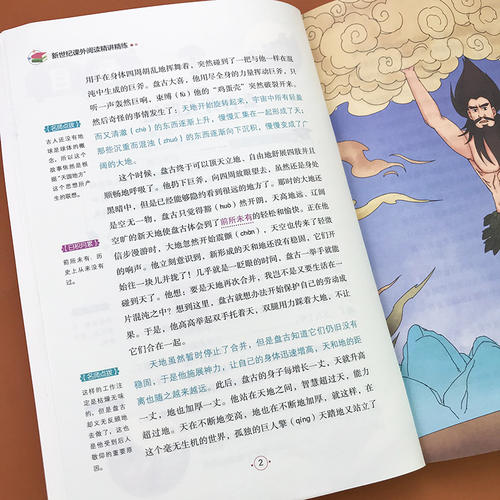 新世纪课外阅读精讲精练
用手在身体四周胡乱地挥舞着，突然碰到了一把与他一样在混
沌中生成的巨斧。盘古大喜，他用尽全身的力量挥动巨斧，只
听一声轰然巨响，束缚（fù）他的“鸡蛋壳”突然破裂开来，
然后奇怪的事情发生了：天地开始旋转起来，宇宙中所有轻盈
而又清澈（chè）的东西逐渐上升，慢慢汇集在一起形成了天；
那些沉重而混浊（zhuó）的东西逐渐向下沉积，慢慢变成了广
阔的大地。
【名师点拨】
古人还没有地
球是球体的概
念，所以这个
故事依然是根
据“天圆地方”
这个思想所产
生的联想。
这个时候，盘古终于可以顶天立地、自由地舒展四肢并且
顺畅地呼吸了。他扔下巨斧，向四周放眼望去，虽然还是身处
黑暗中，但是已经能够隐约看到很远的地方了。那时的大地还
是空无一物，盘古只觉得豁（huò）然开朗，天高地远、辽阔
空旷的新天地使盘古体会到了前所未有的轻松和愉快。正在他
信步漫游时，天地忽然开始震颤（chàn），天空也传来了轻微
的响声。他立刻意识到，新形成的天和地还没有稳固，它们开
始往一块儿并拢了！几乎就是一眨眼的时间，盘古一举手就能
碰到天了。他想：要是天地再次合并，我岂不是又要生活在一
片混沌之中？想到这里，盘古就想办法开始保护自己的劳动成
果。于是，他高高举起双手托着天，双腿用力踩着大地，不让
它们合在一起。
【日积月累】
前所未有：历
史上从来没有
过。
天地虽然暂时停止了合并，但是盘古知道它们仍旧没有
稳固，于是他施展神力，让自己的身体迅速增高，天和地的距
离也随之越来越远。此后，盘古的身子每增长一丈，天就升高
一丈，地也加厚一丈。他站在天地之间，智慧超过天，能力
超过地。天在不断地变高，地也在不断地加厚，就这样，在
这个毫无生机的世界，孤独的巨人擎（qíng）天踏地又站立了
【名师点拨】
这样的工作注
定是枯燥无味
的，但是盘古
却义无反顾地
去做了，这也
是他受到后人
敬仰的重要原
因。
2